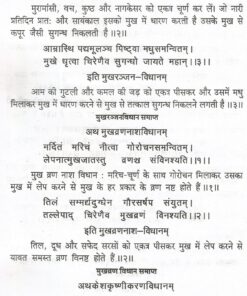 मुरामांसी, वच, कुष्ठ और नागकेसर को एकत्र चूर्ण कर लें। जो नारी
प्रतिदिन प्रातः और सायंकाल इसको मुख में धारण करती है उसके मुख से
कपूर जैसी सुगन्ध निकलती है॥२॥
आम्रास्थि पद्ममूलञ्च पिष्ट्वा मधुसमन्वितम्।
मुखे धृत्वा चिरेणैव सुगन्धो जायते महान्॥३॥
इति मुखरञ्जन-विधानम्
आम की गुटली और कमल की जड़ को एकत्र पीसकर और उसमें मधु
मिलाकर मुख में धारण करने से मुख से तत्काल सुगन्ध निकलने लगती है॥३॥
मुखरञ्जनविधान समाप्त
अथ मुखव्रणनाशविधानम्
मर्दितं मरिचं नीत्वा गोरोचनसमन्वितम्।
लेपनात्मुखजातस्तु व्रणश्च संविनश्यति॥१॥
मुख व्रण नाश विधान : मरिच-चूर्ण के साथ गोरोचन मिलाकर उसका
मुख में लेप करने से मुख के हर प्रकार के व्रण नष्ट होते हैं॥१॥
तिलं सम्मर्द्यदुग्धेन गौरसर्षप संयुतम्।
तल्लेपाद् चिरेणैव मुखव्रणं विनश्यति॥२॥
इति मुखव्रणनाश-विधानम्
तिल, दूध और सफेद सरसों को एकत्र पीसकर मुख में लेप करने से
यावत समस्त व्रण विनष्ट होते हैं॥२॥
मुखव्रण विधान समाप्त
अथकेशकृष्णीकरणविधानम्